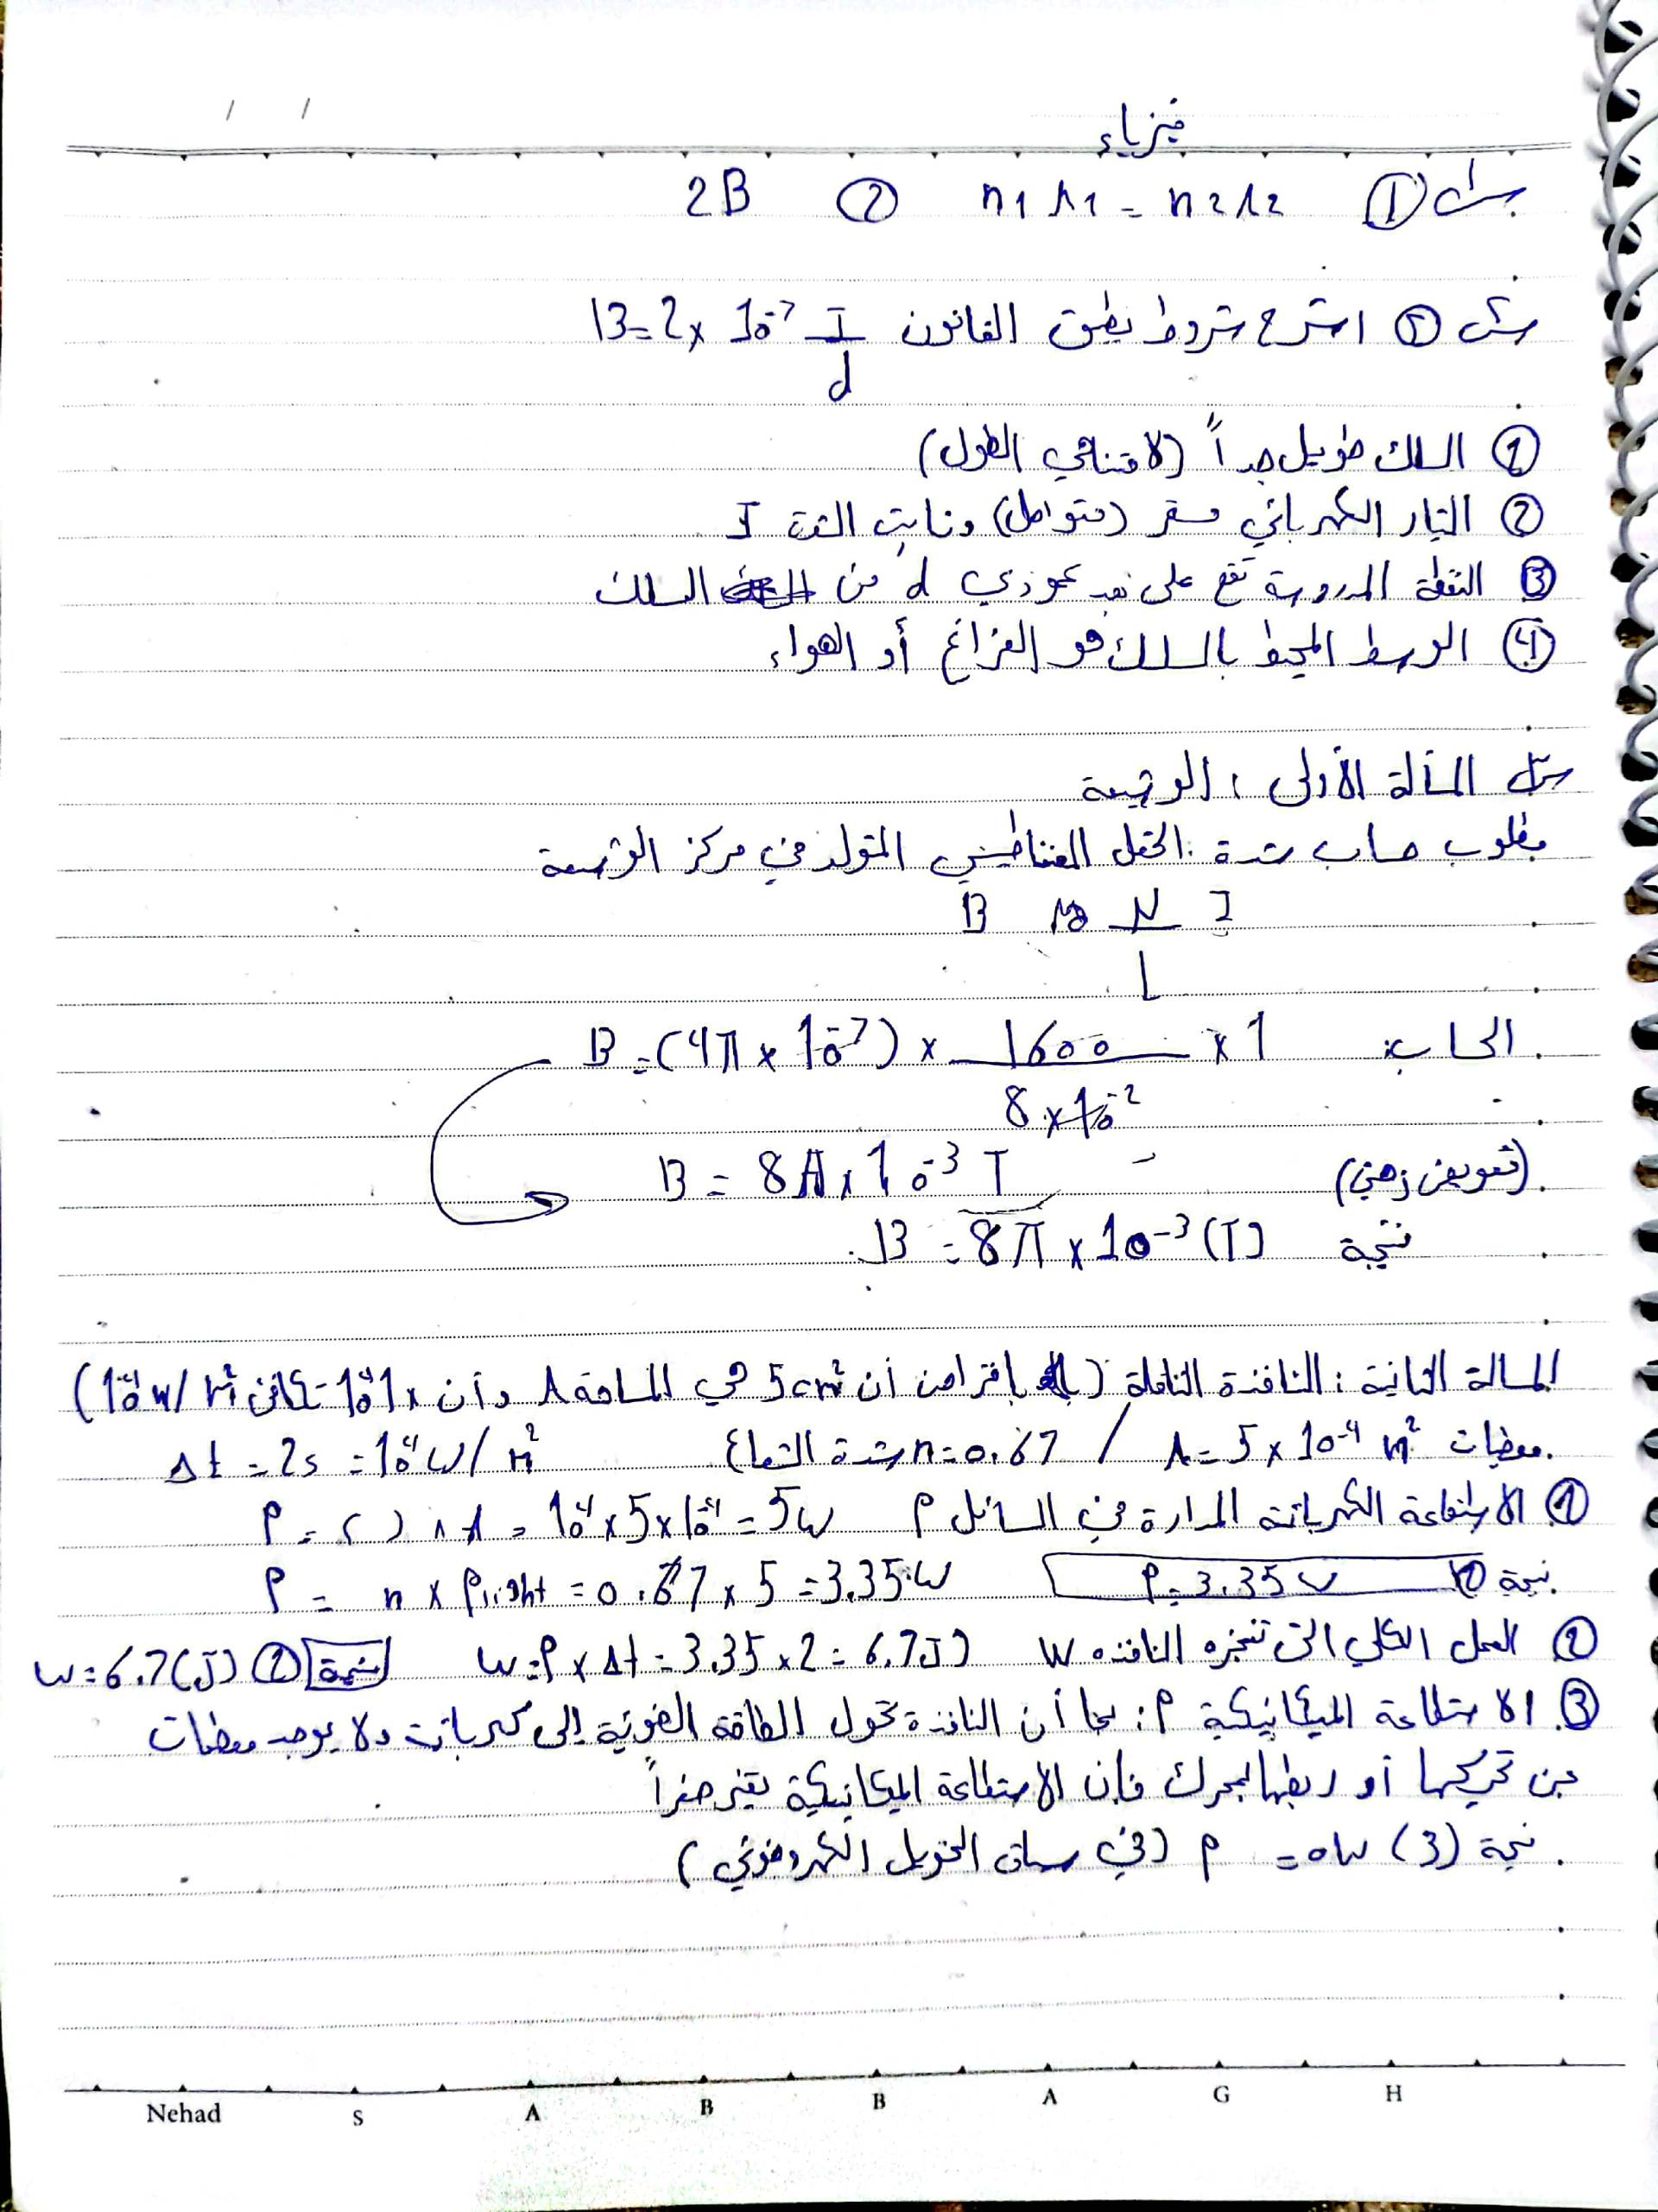 فيزياء
س1 ① n1 λ1 = n2 λ2 ② 2B
س2 ② اشرح شروط تطبق القانون B = 2 x 10⁻⁷ I / d
① السلك طويل جداً (لا متناهي الطول)
② التيار الكهربائي مستمر (متواصل) وثابت الشدة I
③ النقطة المدروسة تقع على بعد عمودي d من السلك
④ الوسط المحيط بالسلك هو الفراغ أو الهواء
س3 المسألة الأولى : الوشيعة
مطلوب حساب شدة الحقل المغناطيسي المتولد في مركز الوشيعة
B μ0 N / L I
الحساب: B = (4π x 10⁻⁷) x 1600 / 8 x 10⁻² x 1
(تعويض زمني) B = 8π x 10⁻³ T
نتيجة B = 8π x 10⁻³ (T)
المسألة الثانية : النافذة الناقلة (بافتراض أن 5cm² هي المساحة A وأن 10⁴ x 1 تكافئ 10⁴ w/m²)
معطيات A = 5 x 10⁻⁴ m² / n = 0.67 شدة الشعاع = 10⁴ W/m² Δt = 2s
① الاستطاعة الكهربائية المدارة في السائل P = 10⁴ x 5 x 10⁻⁴ = 5w
P = n x Plight = 0.67 x 5 = 3.35 W نتيجة ① P = 3.35 W
② العمل الكلي التي تنجزه النافذة W W = P x Δt = 3.35 x 2 = 6.7 J نتيجة ② W = 6.7 (J)
③ الاستطاعة الميكانيكية P: بما أن النافذة تحول الطاقة الضوئية إلى كهربائية ولا يوجد معطيات
عن تحريكها أو ربطها بمحرك فإن الاستطاعة الميكانيكية تعتبر صفراً
نتيجة (3) P = 0W (في سياق التحويل الكهروضوئي)
Nehad S A B B A G H